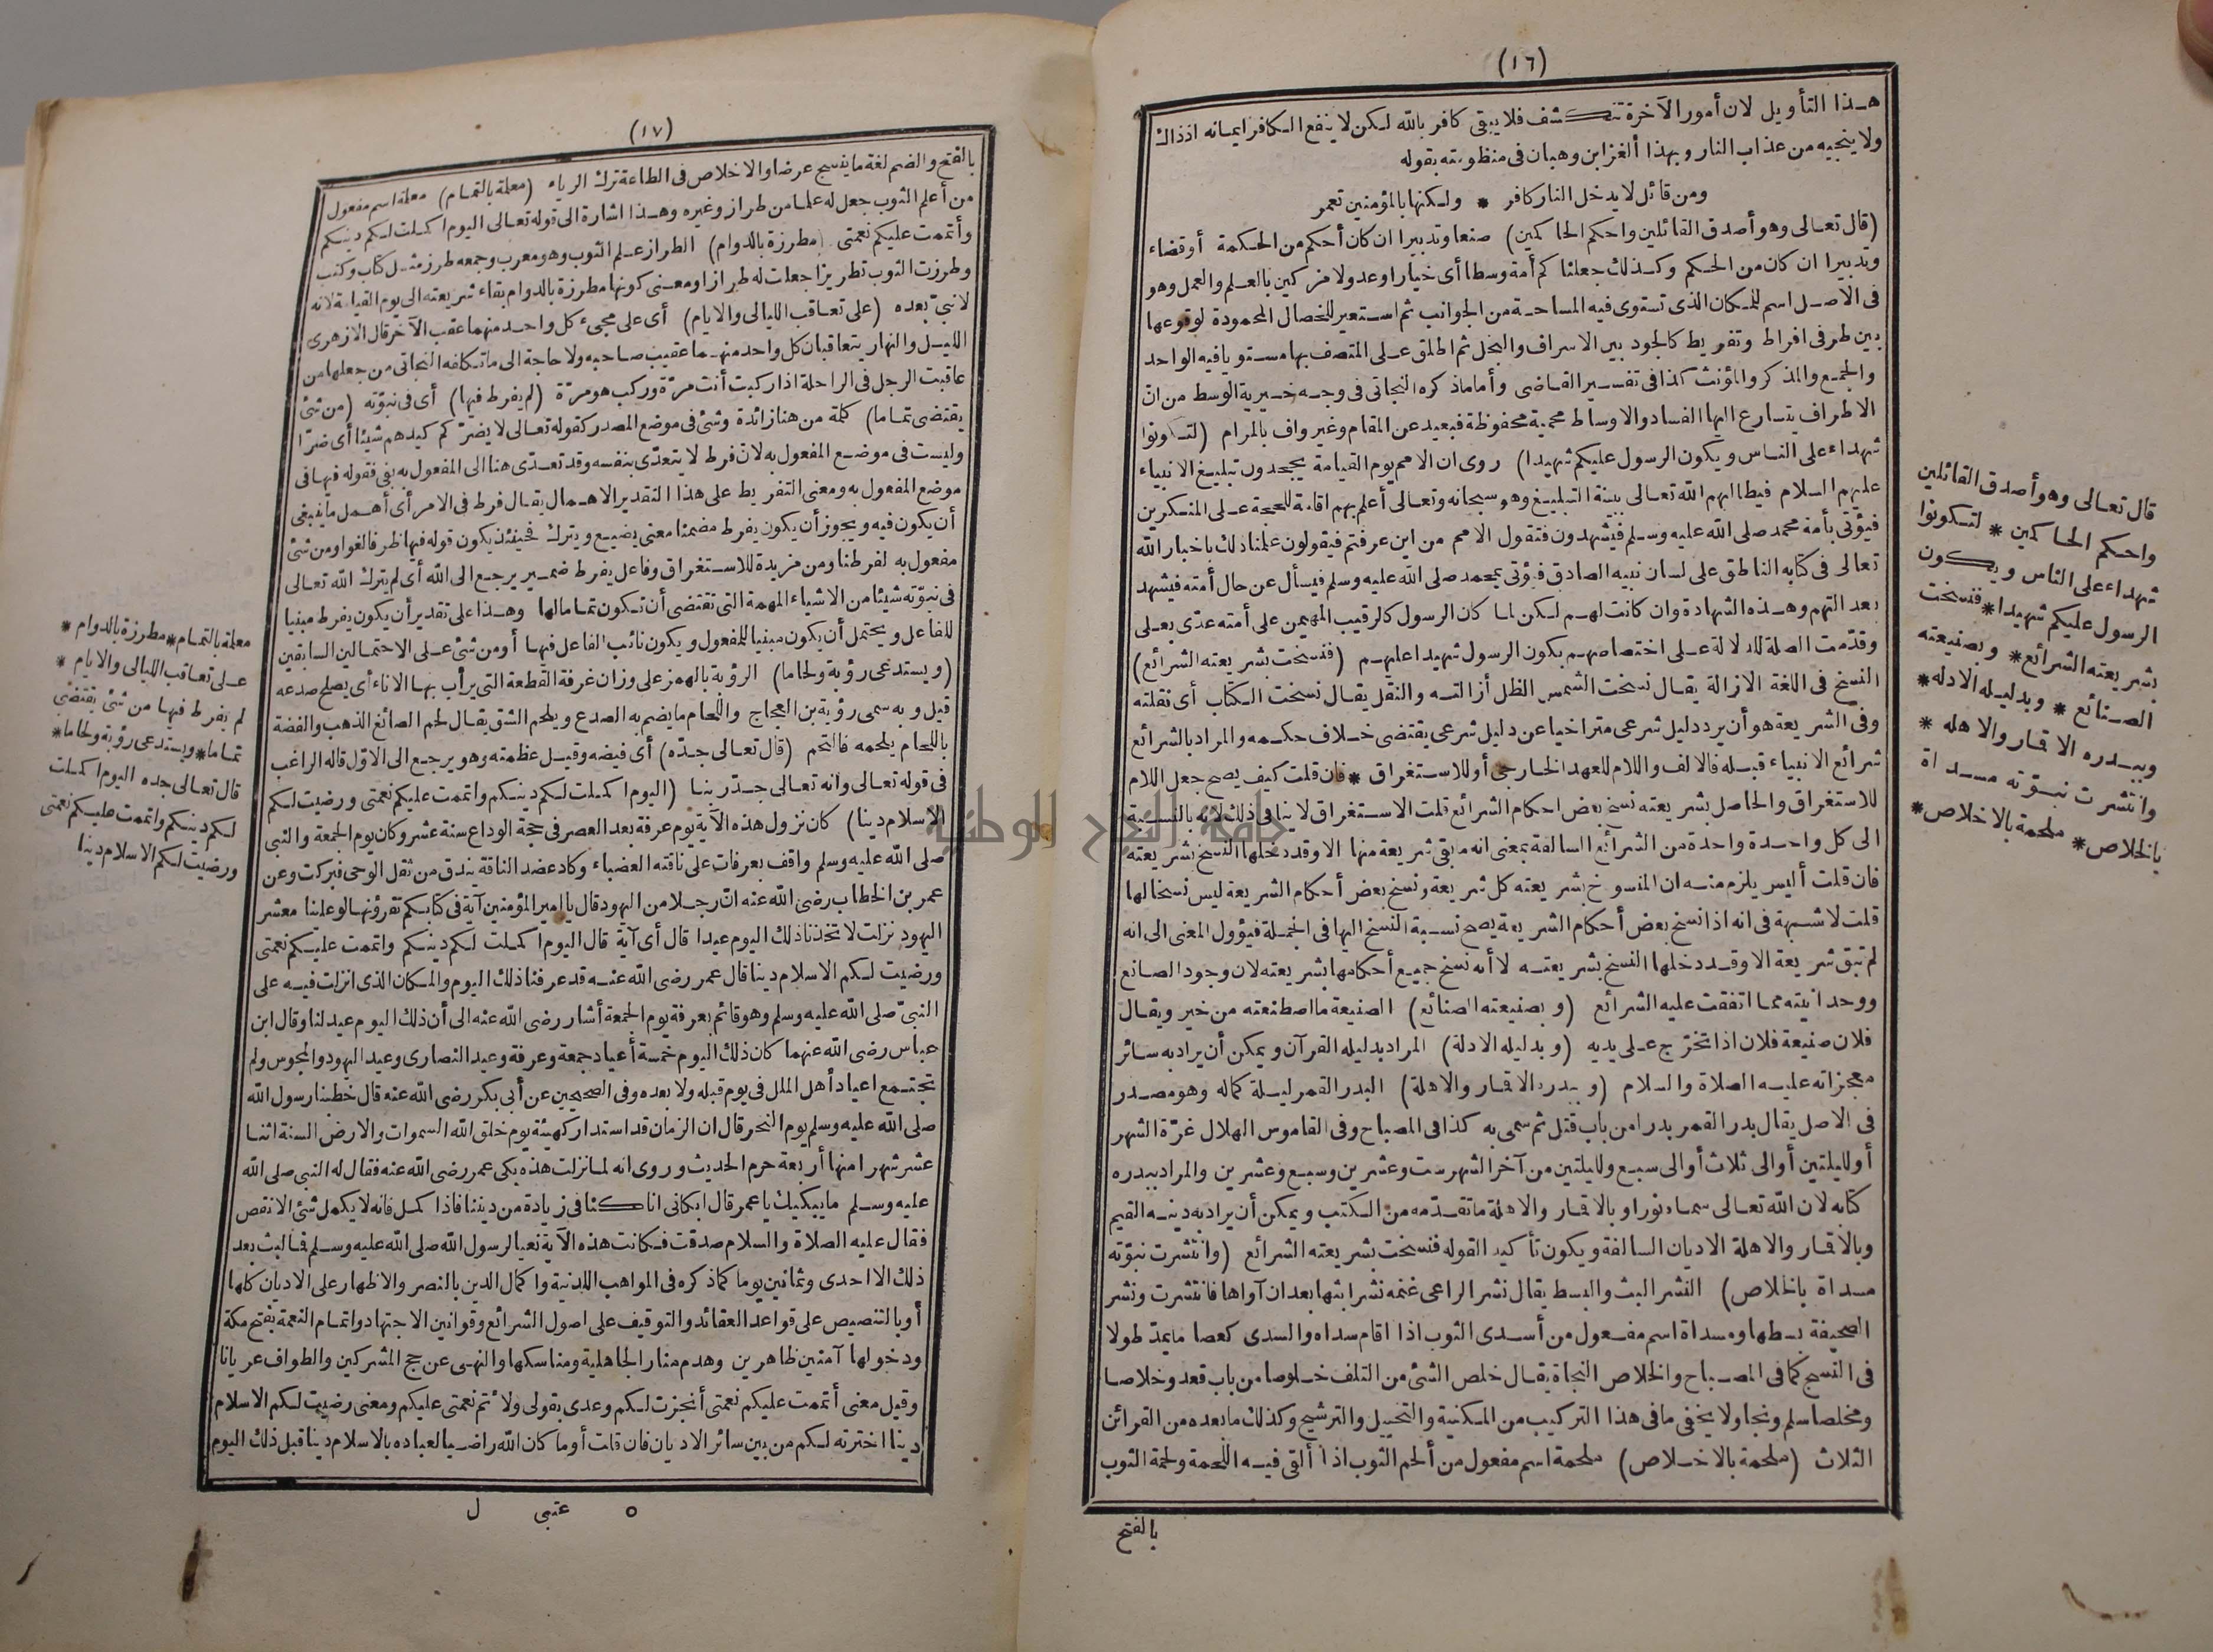 (١٦)
هذا التأويل لان أمور الآخرة تنكشف فلا يبقى كافر بالله لكن لا ينفع الكافر ايمانه اذ ذاك
ولا ينجيه من عذاب النار وبهذا ألغز ابن وهبان فى منظومته بقوله
ومن قائل لا يدخل النار كافر * ولكنها بالمؤمنين تعمر
(قال تعالى وهو أصدق القائلين واحكم الحاكمين) صنعا وتدبيرا ان كان أحكم من الحكمة أو قضاء
وتدبيرا ان كان من الحكم وكذلك جعلناكم أمة وسطا أى خيارا وعدولا مزكين بالعلم والعمل وهو
فى الاصل اسم للمكان الذى تستوى فيه المساحة من الجوانب ثم استعير للخصال المحمودة لوقوعها
بين طرفى افراط وتفريط كالجود بين الاسراف والبخل ثم اطلق على المتصف بها مستويا فيه الواحد
والجمع والمذكر والمؤنث كذا فى تفسير القاضى وأما ما ذكره النجاتى فى وجه خيرية الوسط من ان
الاطراف يتسارع اليها الفساد والاوساط محمية محفوظة فبعيد عن المقام وغير واف بالمرام (لتكونوا
شهداء على الناس ويكون الرسول عليكم شهيدا) روى ان الامم يوم القيامة يجحدون تبليغ الانبياء
عليهم السلام فيطالبهم الله تعالى ببينة التبليغ وهو سبحانه وتعالى أعلم بهم اقامة للحجة على المنكرين
فيؤتى بأمة محمد صلى الله عليه وسلم فيشهدون فتقول الامم من اين عرفتم فيقولون علمنا ذلك باخبار الله
تعالى فى كتابه الناطق على لسان نبيه الصادق فيؤتى بمحمد صلى الله عليه وسلم فيسأل عن حال أمته فيشهد
بعدالتهم وهذه الشهادة وان كانت لهم لكن لما كان الرسول كالرقيب المهيمن على أمته عدّى بعلى
وقدّمت الصلة للدلالة على اختصاصهم بكون الرسول شهيدا عليهم (فنسخت بشريعته الشرائع)
النسخ فى اللغة الازالة يقال نسخت الشمس الظل أزالته والنقل يقال نسخت الكتاب أى نقلته
وفى الشريعة هو أن يرد دليل شرعى متراخيا عن دليل شرعى يقتضى خلاف حكمه والمراد بالشرائع
شرائع الانبياء قبله فالالف واللام للعهد الخارجى أو للاستغراق * فان قلت كيف يصح جعل اللام
للاستغراق والحاصل بشريعته نسخ بعض احكام الشرائع قلت الاستغراق لا ينافى ذلك لانه بالنسبة
الى كل واحدة واحدة من الشرائع السالفة بمعنى انه ما بقى شريعة منها الا وقد دخلها النسخ بشريعته
فان قلت أليس يلزم منه ان المنسوخ بشريعته كل شريعة ونسخ بعض أحكام الشريعة ليس نسخا لها
قلت لا شبهة فى انه اذا نسخ بعض أحكام الشريعة يصح نسبة النسخ اليها فى الجملة فيؤول المعنى الى انه
لم تبق شريعة الا وقد دخلها النسخ بشريعته لا أنه نسخ جميع أحكامها بشريعته لان وجود الصانع
ووحدانيته مما اتفقت عليه الشرائع (وبصنيعته الصنائع) الصنيعة ما اصطنعته من خير ويقال
فلان صنيعة فلان اذا تخرّج على يديه (وبدليله الادلة) المراد بدليله القرآن ويمكن أن يراد به سائر
معجزاته عليه الصلاة والسلام (وببدره الاقمار والاهلة) البدر القمر ليلة كماله وهو مصدر
فى الاصل يقال بدر القمر بدرا من باب قتل ثم سمى به كذا فى المصباح وفى القاموس الهلال غرّة الشهر
أو لليلتين أو الى ثلاث أو الى سبع ولليلتين من آخر الشهر ست وعشرين وسبع وعشرين والمراد ببدره
كتابه لان الله تعالى سماه نورا وبالاقمار والاهلة ما تقدّمه من الكتب ويمكن أن يراد به دينه القيم
وبالاقمار والاهلة الاديان السالفة ويكون تأكيد القوله فنسخت بشريعته الشرائع (وانتشرت نبوّته
مسداة بالخلاص) النشر البث والبسط يقال نشر الراعى غنمه نشرا بثها بعد ان آواها فانتشرت ونشر
الصحيفة بسطها ومسداة اسم مفعول من أسدى الثوب اذا اقام سداه والسدى كعصا ما يمدّ طولا
فى النسج كما فى المصباح والخلاص النجاة يقال خلص الشئ من التلف خلوصا من باب قعد وخلاصا
ومخلصا سلم ونجا ولا يخفى ما فى هذا التركيب من المكنية والتخييل والترشيح وكذلك ما بعده من القرائن
الثلاث (ملحمة بالاخلاص) ملحمة اسم مفعول من ألحم الثوب اذا ألقى فيه اللحمة ولحمة الثوب
بالفتح
قال تعالى وهو أصدق القائلين
واحكم الحاكمين * لتكونوا
شهداء على الناس ويكون
الرسول عليكم شهيدا * فنسخت
بشريعته الشرائع * وبصنيعته
الصنائع * وبدليله الادله *
وببدره الاقمار والاهله *
وانتشرت نبوّته مسداة
بالخلاص * ملحمة بالاخلاص *
(١٧)
بالفتح والضم لغة ما ينسج عرضا والاخلاص فى الطاعة ترك الرياء (معلمة بالتمام) معلمة اسم مفعول
من أعلم الثوب جعل له علما من طراز وغيره وهذا اشارة الى قوله تعالى اليوم اكملت لكم دينكم
وأتممت عليكم نعمتى (مطرزة بالدوام) الطراز علم الثوب وهو معرب وجمعه طرز مثل كتاب وكتب
وطرزت الثوب تطريزا جعلت له طرازا ومعنى كونها مطرزة بالدوام بقاء شريعته الى يوم القيامة لانه
لا نبىّ بعده (على تعاقب الليالى والايام) أى على مجىء كل واحد منهما عقب الآخر قال الازهرى
الليل والنهار يتعاقبان كل واحد منهما عقيب صاحبه ولا حاجة الى ما تكلفه النجاتى من جعلها من
عاقبت الرجل فى الراحلة اذا ركبت أنت مرّة وركب هو مرّة (لم يفرط فيها) أى فى نبوّته (من شئ
يقتضى تماما) كلمة من هنا زائدة وشئ فى موضع المصدر كقوله تعالى لا يضرّكم كيدهم شيئا أى ضرّا
وليست فى موضع المفعول به لان فرط لا يتعدّى بنفسه وقد تعدّى هنا الى المفعول به بفى فقوله فيها فى
موضع المفعول به ومعنى التفريط على هذا التقدير الاهمال يقال فرط فى الامر أى أهمل ما ينبغى
أن يكون فيه ويجوز أن يكون يفرط مضمنا معنى يضيع ويترك فحينئذ يكون قوله فيها ظرفا لغوا ومن شئ
مفعول به لفرطنا ومن مزيدة للاستغراق وفاعل يفرط ضمير يرجع الى الله أى لم يترك الله تعالى
فى نبوّته شيئا من الاشياء المهمة التى تقتضى أن تكون تماما لها وهذا على تقدير أن يكون يفرط مبنيا
للفاعل ويحتمل أن يكون مبنيا للمفعول ويكون نائب الفاعل فيها أو من شئ على الاحتمالين السابقين
(ويستدعى رؤبة ولحاما) الرؤبة بالهمز على وزان غرفة القطعة التى يرأب بها الاناء أى يصلح صدعه
قيل وبه سمى رؤبة بن العجاج واللحام ما يضم به الصدع ويلحم الشق يقال لحم الصائغ الذهب والفضة
باللحام يلحمه فالتحم (قال تعالى جدّه) أى فيضه وقيل عظمته وهو يرجع الى الاوّل قاله الراغب
فى قوله تعالى وانه تعالى جدّ ربنا (اليوم اكملت لكم دينكم واتممت عليكم نعمتى ورضيت لكم
الاسلام دينا) كان نزول هذه الآية يوم عرفة بعد العصر فى حجة الوداع سنة عشر وكان يوم الجمعة والنبى
صلى الله عليه وسلم واقف بعرفات على ناقته العضباء وكاد عضد الناقة يندق من ثقل الوحى فبركت وعن
عمر بن الخطاب رضى الله عنه انّ رجلا من اليهود قال يا امير المؤمنين آية فى كتابكم تقرؤنها لو علينا معشر
اليهود نزلت لاتخذنا ذلك اليوم عيدا قال أى آية قال اليوم اكملت لكم دينكم واتممت عليكم نعمتى
ورضيت لكم الاسلام دينا قال عمر رضى الله عنه قد عرفنا ذلك اليوم والمكان الذى انزلت فيه على
النبىّ صلى الله عليه وسلم وهو قائم بعرفة يوم الجمعة أشار رضى الله عنه الى أن ذلك اليوم عيد لنا وقال ابن
عباس رضى الله عنهما كان ذلك اليوم خمسة أعياد جمعة وعرفة وعيد النصارى وعيد اليهود والمجوس ولم
تجتمع اعياد أهل الملل فى يوم قبله ولا بعده وفى الصحيحين عن أبى بكر رضى الله عنه قال خطبنا رسول الله
صلى الله عليه وسلم يوم النحر قال ان الزمان قد استدار كهيئة يوم خلق الله السموات والارض السنة اثنا
عشر شهرا منها أربعة حرم الحديث وروى انه لما نزلت هذه بكى عمر رضى الله عنه فقال له النبى صلى الله
عليه وسلم ما يبكيك يا عمر قال ابكانى انا كنا فى زيادة من ديننا فاذا كمل فانه لا يكمل شئ الا نقص
فقال عليه الصلاة والسلام صدقت فكانت هذه الآية نعيا لرسول الله صلى الله عليه وسلم فما لبث بعد
ذلك الا احدى وثمانين يوما كما ذكره فى المواهب اللدنية واكمال الدين بالنصر والاظهار على الاديان كلها
أو بالتنصيص على قواعد العقائد والتوقيف على اصول الشرائع وقوانين الاجتهاد واتمام النعمة بفتح مكة
ودخولها آمنين ظاهرين وهدم منار الجاهلية ومناسكها والنهى عن حج المشركين والطواف عريانا
وقيل معنى أتممت عليكم نعمتى أنجزت لكم وعدى بقولى ولاتم نعمتى عليكم ومعنى رضيت لكم الاسلام
دينا اخترته لكم من بين سائر الاديان فان قلت أوما كان الله راضيا لعباده بالاسلام دينا قبل ذلك اليوم
٥ عتبى ل
معلمة بالتمام * مطرزة بالدوام *
على تعاقب الليالى والايام *
لم يفرط فيها من شئ يقتضى
تماما * ويستدعى رؤبة ولحاما *
قال تعالى جده اليوم اكملت
لكم دينكم واتممت عليكم نعمتى
ورضيت لكم الاسلام دينا
جامعة النجاح الوطنية